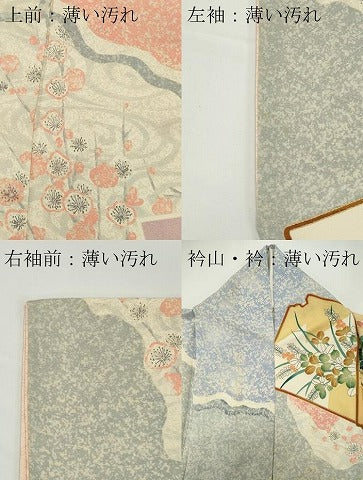 上前：薄い汚れ
左袖：薄い汚れ
右袖前：薄い汚れ
衿山・衿：薄い汚れ